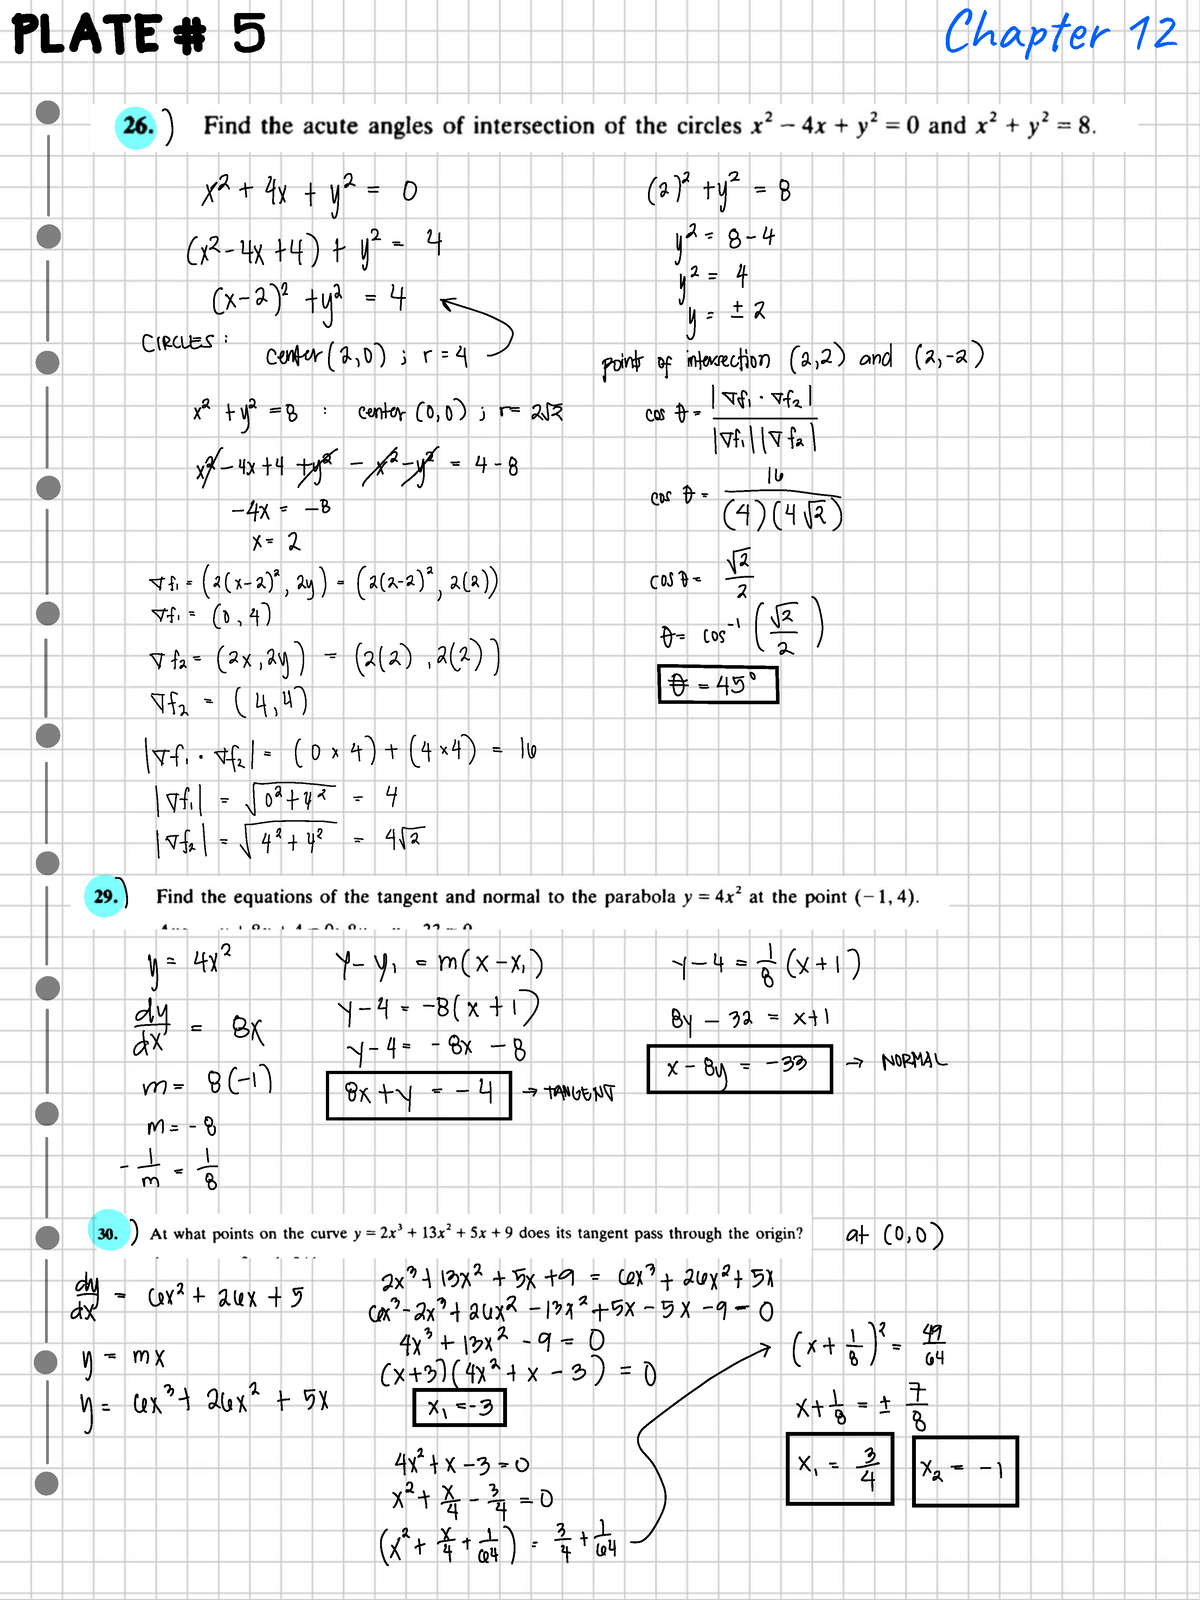 PLATE # 5
Chapter 12
26.) Find the acute angles of intersection of the circles x² − 4x + y² = 0 and x² + y² = 8.
x² + 4x + y² = 0
(x² − 4x + 4) + y² = 4
(x−2)² + y² = 4
CIRCLES :
center (2,0) ; r = 4
x² + y² = 8 : center (0,0) ; r = 2√2
x² − 4x + 4 + y² − x² − y² = 4 − 8
−4x = −8
x = 2
∇f₁ = (2(x−2)², 2y) = (2(2−2)², 2(2))
∇f₁ = (0, 4)
∇f₂ = (2x, 2y) = (2(2), 2(2))
∇f₂ = (4,4)
|∇f₁ · ∇f₂| = (0 × 4) + (4 × 4) = 16
|∇f₁| = √0² + 4² = 4
|∇f₂| = √4² + 4² = 4√2
(2)² + y² = 8
y² = 8 − 4
y² = 4
y = ± 2
point of intersection (2,2) and (2,−2)
cos θ = |∇f₁ · ∇f₂| / |∇f₁||∇f₂|
cos θ = 16 / (4)(4√2)
cos θ = √2 / 2
θ = cos⁻¹ (√2 / 2)
θ = 45°
29.) Find the equations of the tangent and normal to the parabola y = 4x² at the point (−1, 4).
y = 4x²
dy/dx = 8x
m = 8(−1)
m = −8
−1/m = 1/8
y − y₁ = m(x − x₁)
y − 4 = −8(x + 1)
y − 4 = −8x − 8
8x + y = −4 → TANGENT
y − 4 = 1/8 (x + 1)
8y − 32 = x + 1
x − 8y = −33 → NORMAL
30.) At what points on the curve y = 2x³ + 13x² + 5x + 9 does its tangent pass through the origin? at (0,0)
dy/dx = 6x² + 26x + 5
y = mx
y = 6x³ + 26x² + 5x
2x³ + 13x² + 5x + 9 = 6x³ + 26x² + 5x
6x³ − 2x³ + 26x² − 13x² + 5x − 5x − 9 = 0
4x³ + 13x² − 9 = 0
(x+3)(4x² + x − 3) = 0
x₁ = −3
4x² + x − 3 = 0
x² + x/4 − 3/4 = 0
(x² + x/4 + 1/64) = 3/4 + 1/64
(x + 1/8)² = 49/64
x + 1/8 = ± 7/8
x₁ = 3/4
x₂ = −1